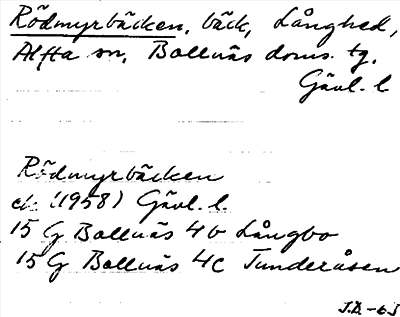 Rödmyrbäcken, bäck, Långhed,
Alfta sn, Bollnäs doms. tg.
Gävl. l.
Rödmyrbäcken
ek. (1958) Gävl. l.
15 G Bollnäs 4b Långbo
15 G Bollnäs 4c Tunderåsen
J.D. -63